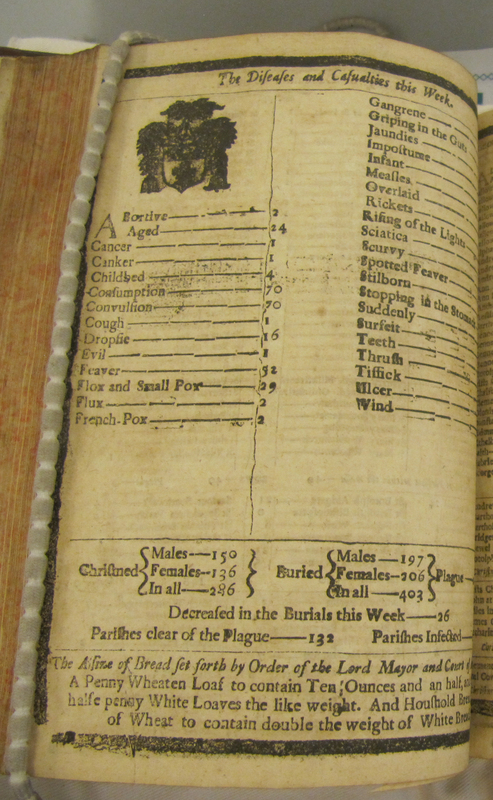 The Diseases and Casualties this Week.
ABortive 2
Aged 24
Cancer 1
Canker 1
Childbed 4
Consumption 70
Convulsion 70
Cough 1
Dropsie 16
Evil 1
Feaver 52
Flox and Small Pox 29
Flux 2
French-Pox 2
Gangrene
Griping in the Guts
Jaundies
Impostume
Infant
Measles
Overlaid
Rickets
Rising of the Lights
Sciatica
Scurvy
Spotted Feaver
Stilborn
Stopping in the Stomach
Suddenly
Surfeit
Teeth
Thrush
Tissick
Ulcer
Wind
Christned { Males—150 Females—136 In all—286 } Buried { Males—197 Females—206 In all—403 } Plague
Decreased in the Burials this Week—26
Parishes clear of the Plague—132 Parishes Infected
The Assize of Bread set forth by Order of the Lord Mayor and Court of
A Penny Wheaten Loaf to contain Ten Ounces and an half, and
halfe penny White Loaves the like weight. And Houshold
of Wheat to contain double the weight of White